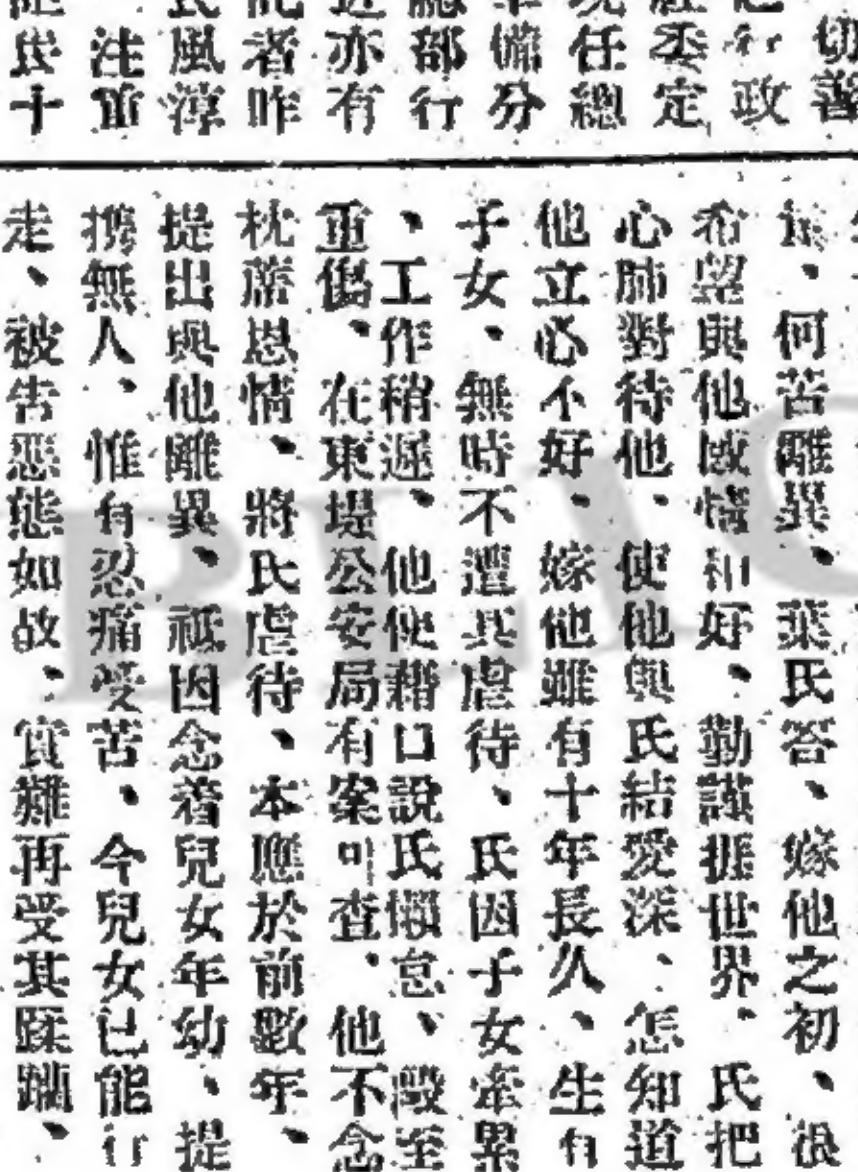 切善
行政
委定
任總
備分
部行
亦有
者昨
風淳
注重
民
、何苦離異、葉氏答、嫁他之初、很
希望與他感情和好、勤謹捱世界、氏把
心肺對待他、使他與氏結愛深、怎知道
他立心不好、嫁他雖有十年長久、生有
子女、無時不遭其虐待、氏因子女牽累
、工作稍遲、他便藉口說氏懶怠、毆至
重傷、在東堤公安局有案可查、他不念
枕蓆恩情、將氏虐待、本應於前數年、
提出與他離異、祗因念着兒女年幼、提
携無人、惟有忍痛受苦、今兒女已能行
走、被告惡態如故、實難再受其蹂躪、
BLIC